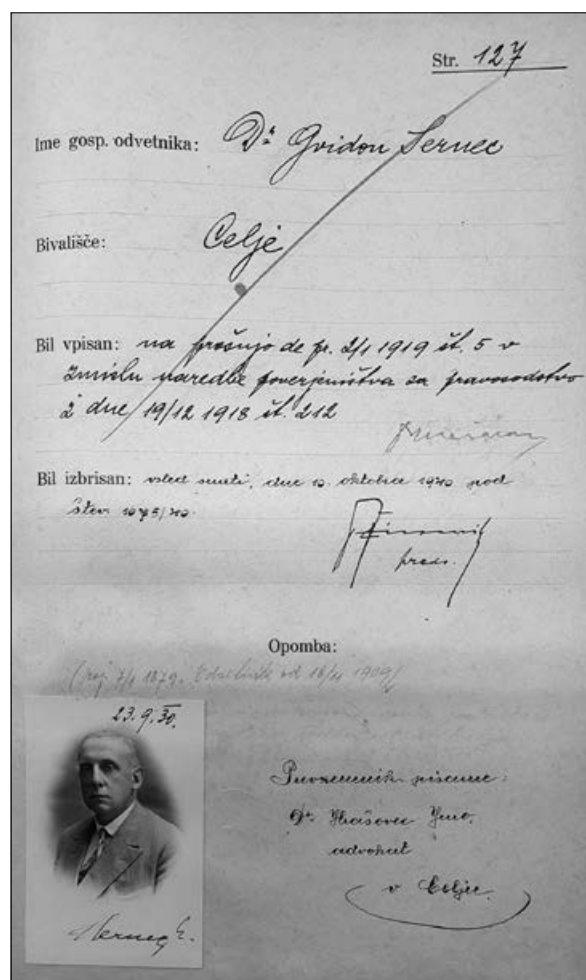 Str. 127
Ime gosp. odvetnika: Dr Gvidon Sernec
Bivališče: Celje
Bil vpisan: na prošnjo de pr. 2/1 1919 št. 5 v
zmislu naredbe poverjeništva za pravosodstvo
z dne 19/12 1918 št. 212
Bil izbrisan: vsled smrti, dne 10. oktobra 1940 pod
štev. 1075/40.
preds.
Opomba:
(roj. 7/4 1879. Odvetnik od 18/4 1909)
23.9.30.
Prevzemnik pisarne:
Dr. Hrašovec
advokat
v Celje.
Sernec